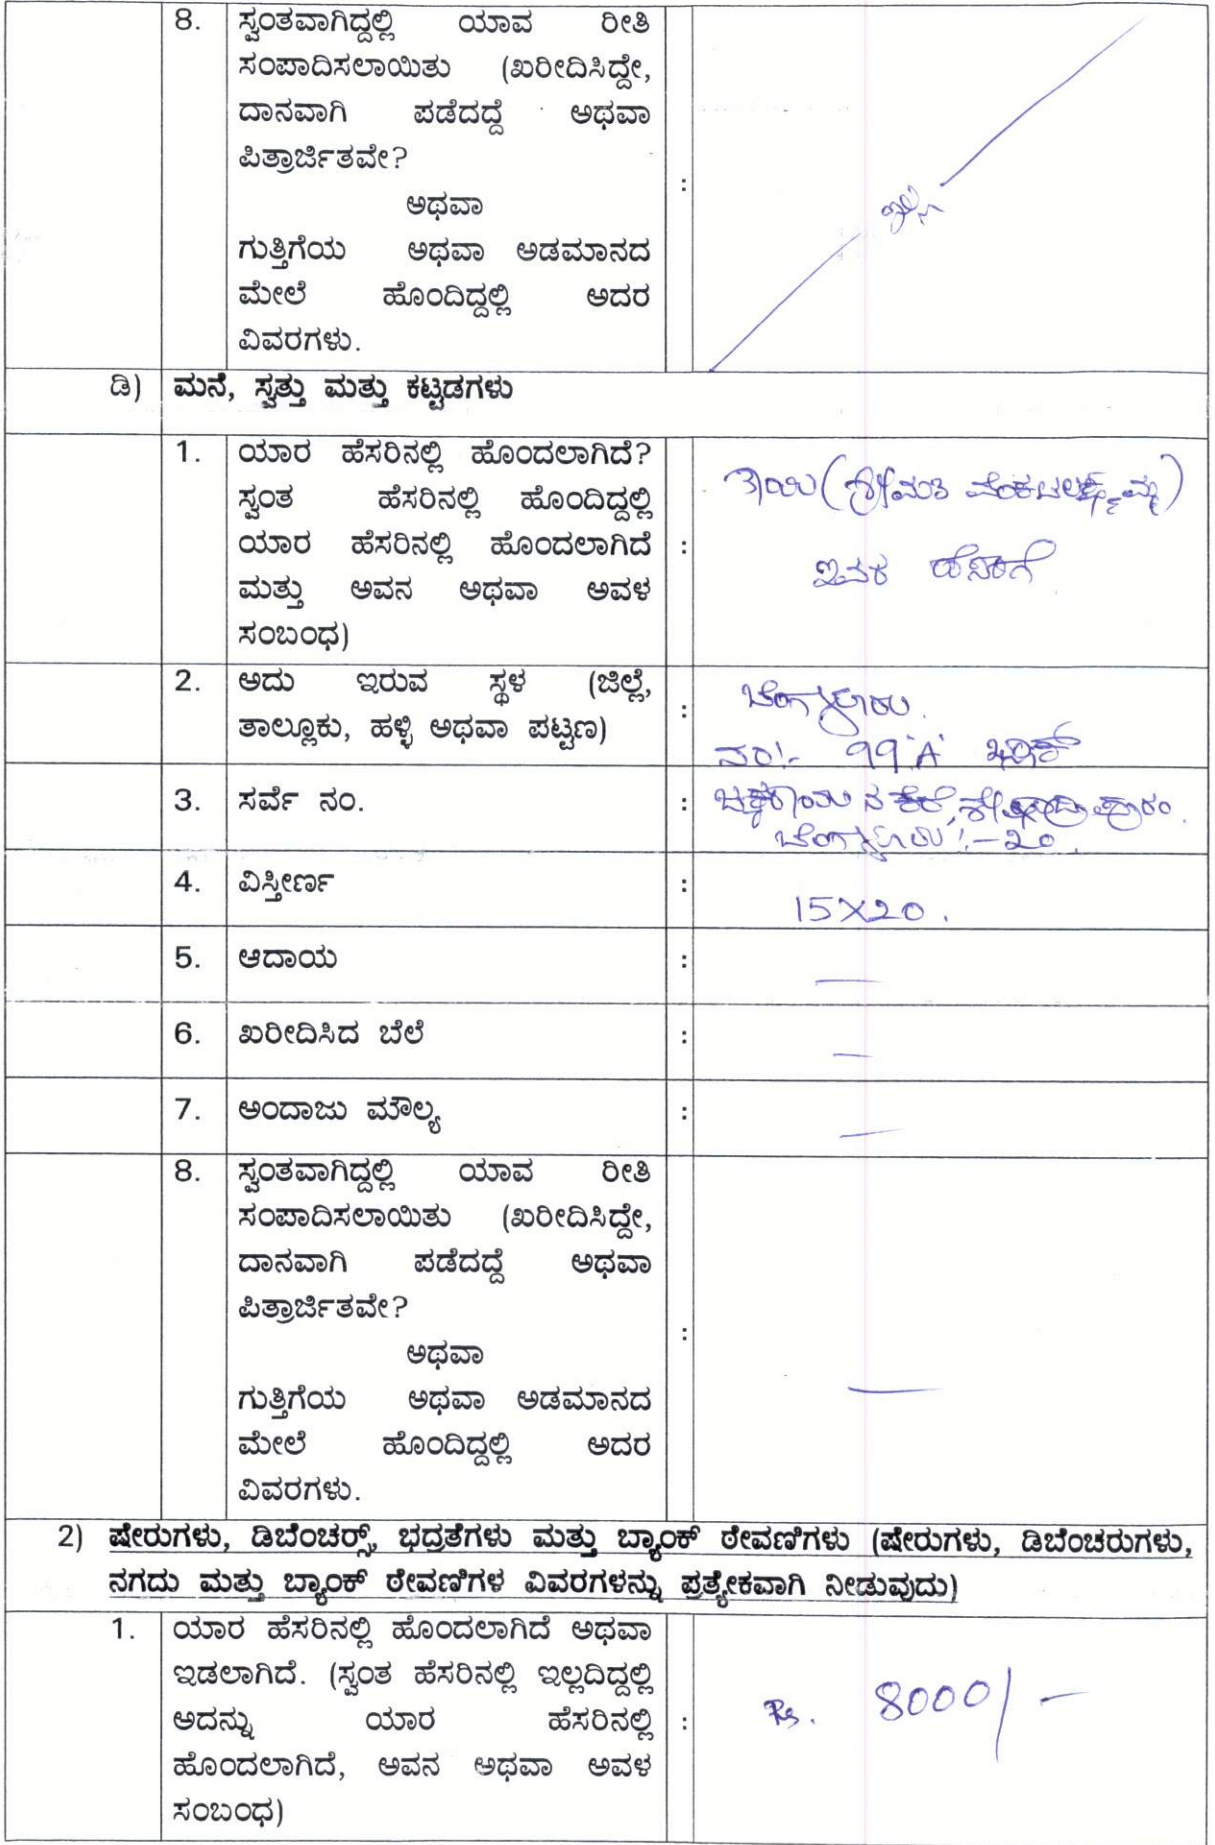 8. ಸ್ವಂತವಾಗಿದ್ದಲ್ಲಿ ಯಾವ ರೀತಿ
ಸಂಪಾದಿಸಲಾಯಿತು (ಖರೀದಿಸಿದ್ದೇ,
ದಾನವಾಗಿ ಪಡೆದದ್ದೆ ಅಥವಾ
ಪಿತ್ರಾರ್ಜಿತವೇ?
ಅಥವಾ
ಗುತ್ತಿಗೆಯ ಅಥವಾ ಅಡಮಾನದ
ಮೇಲೆ ಹೊಂದಿದ್ದಲ್ಲಿ ಅದರ
ವಿವರಗಳು.
: ಇಲ್ಲ
ಡಿ) ಮನೆ, ಸ್ವತ್ತು ಮತ್ತು ಕಟ್ಟಡಗಳು
1. ಯಾರ ಹೆಸರಿನಲ್ಲಿ ಹೊಂದಲಾಗಿದೆ?
ಸ್ವಂತ ಹೆಸರಿನಲ್ಲಿ ಹೊಂದಿದ್ದಲ್ಲಿ
ಯಾರ ಹೆಸರಿನಲ್ಲಿ ಹೊಂದಲಾಗಿದೆ
ಮತ್ತು ಅವನ ಅಥವಾ ಅವಳ
ಸಂಬಂಧ)
: ತಾಯಿ (ಶ್ರೀಮತಿ ವೆಂಕಟಲಕ್ಷ್ಮಮ್ಮ)
ಇವರ ಹೆಸರಿಗೆ
2. ಅದು ಇರುವ ಸ್ಥಳ (ಜಿಲ್ಲೆ,
ತಾಲ್ಲೂಕು, ಹಳ್ಳಿ ಅಥವಾ ಪಟ್ಟಣ)
: ಬೆಂಗಳೂರು.
ನಂ:- 99 'A'
3. ಸರ್ವೆ ನಂ.
: ಕೆರೆ, ಶೇಷಾದ್ರಿಪುರಂ.
ಬೆಂಗಳೂರು:-೨೦.
4. ವಿಸ್ತೀರ್ಣ : 15X20.
5. ಆದಾಯ : —
6. ಖರೀದಿಸಿದ ಬೆಲೆ : —
7. ಅಂದಾಜು ಮೌಲ್ಯ : —
8. ಸ್ವಂತವಾಗಿದ್ದಲ್ಲಿ ಯಾವ ರೀತಿ
ಸಂಪಾದಿಸಲಾಯಿತು (ಖರೀದಿಸಿದ್ದೇ,
ದಾನವಾಗಿ ಪಡೆದದ್ದೆ ಅಥವಾ
ಪಿತ್ರಾರ್ಜಿತವೇ?
ಅಥವಾ
ಗುತ್ತಿಗೆಯ ಅಥವಾ ಅಡಮಾನದ
ಮೇಲೆ ಹೊಂದಿದ್ದಲ್ಲಿ ಅದರ
ವಿವರಗಳು.
: —
2) ಷೇರುಗಳು, ಡಿಬೆಂಚರ್ಸ್, ಭದ್ರತೆಗಳು ಮತ್ತು ಬ್ಯಾಂಕ್ ಠೇವಣಿಗಳು (ಷೇರುಗಳು, ಡಿಬೆಂಚರುಗಳು,
ನಗದು ಮತ್ತು ಬ್ಯಾಂಕ್ ಠೇವಣಿಗಳ ವಿವರಗಳನ್ನು ಪ್ರತ್ಯೇಕವಾಗಿ ನೀಡುವುದು)
1. ಯಾರ ಹೆಸರಿನಲ್ಲಿ ಹೊಂದಲಾಗಿದೆ ಅಥವಾ
ಇಡಲಾಗಿದೆ. (ಸ್ವಂತ ಹೆಸರಿನಲ್ಲಿ ಇಲ್ಲದಿದ್ದಲ್ಲಿ
ಅದನ್ನು ಯಾರ ಹೆಸರಿನಲ್ಲಿ
ಹೊಂದಲಾಗಿದೆ, ಅವನ ಅಥವಾ ಅವಳ
ಸಂಬಂಧ)
: Rs. 8000/-